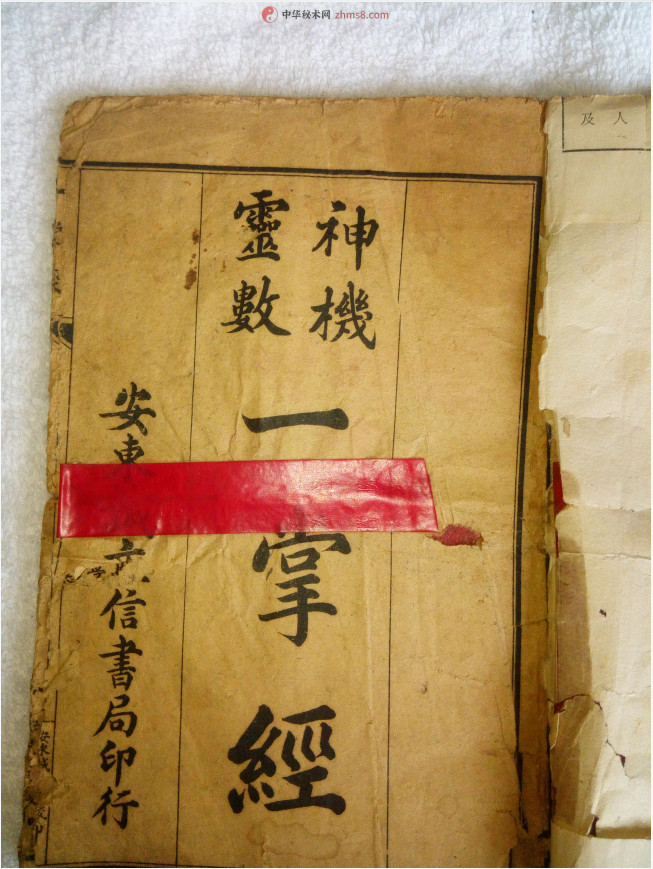 中华秘术网 zhms8.com
及人
神機
靈數
一掌經
安東
信書局印行